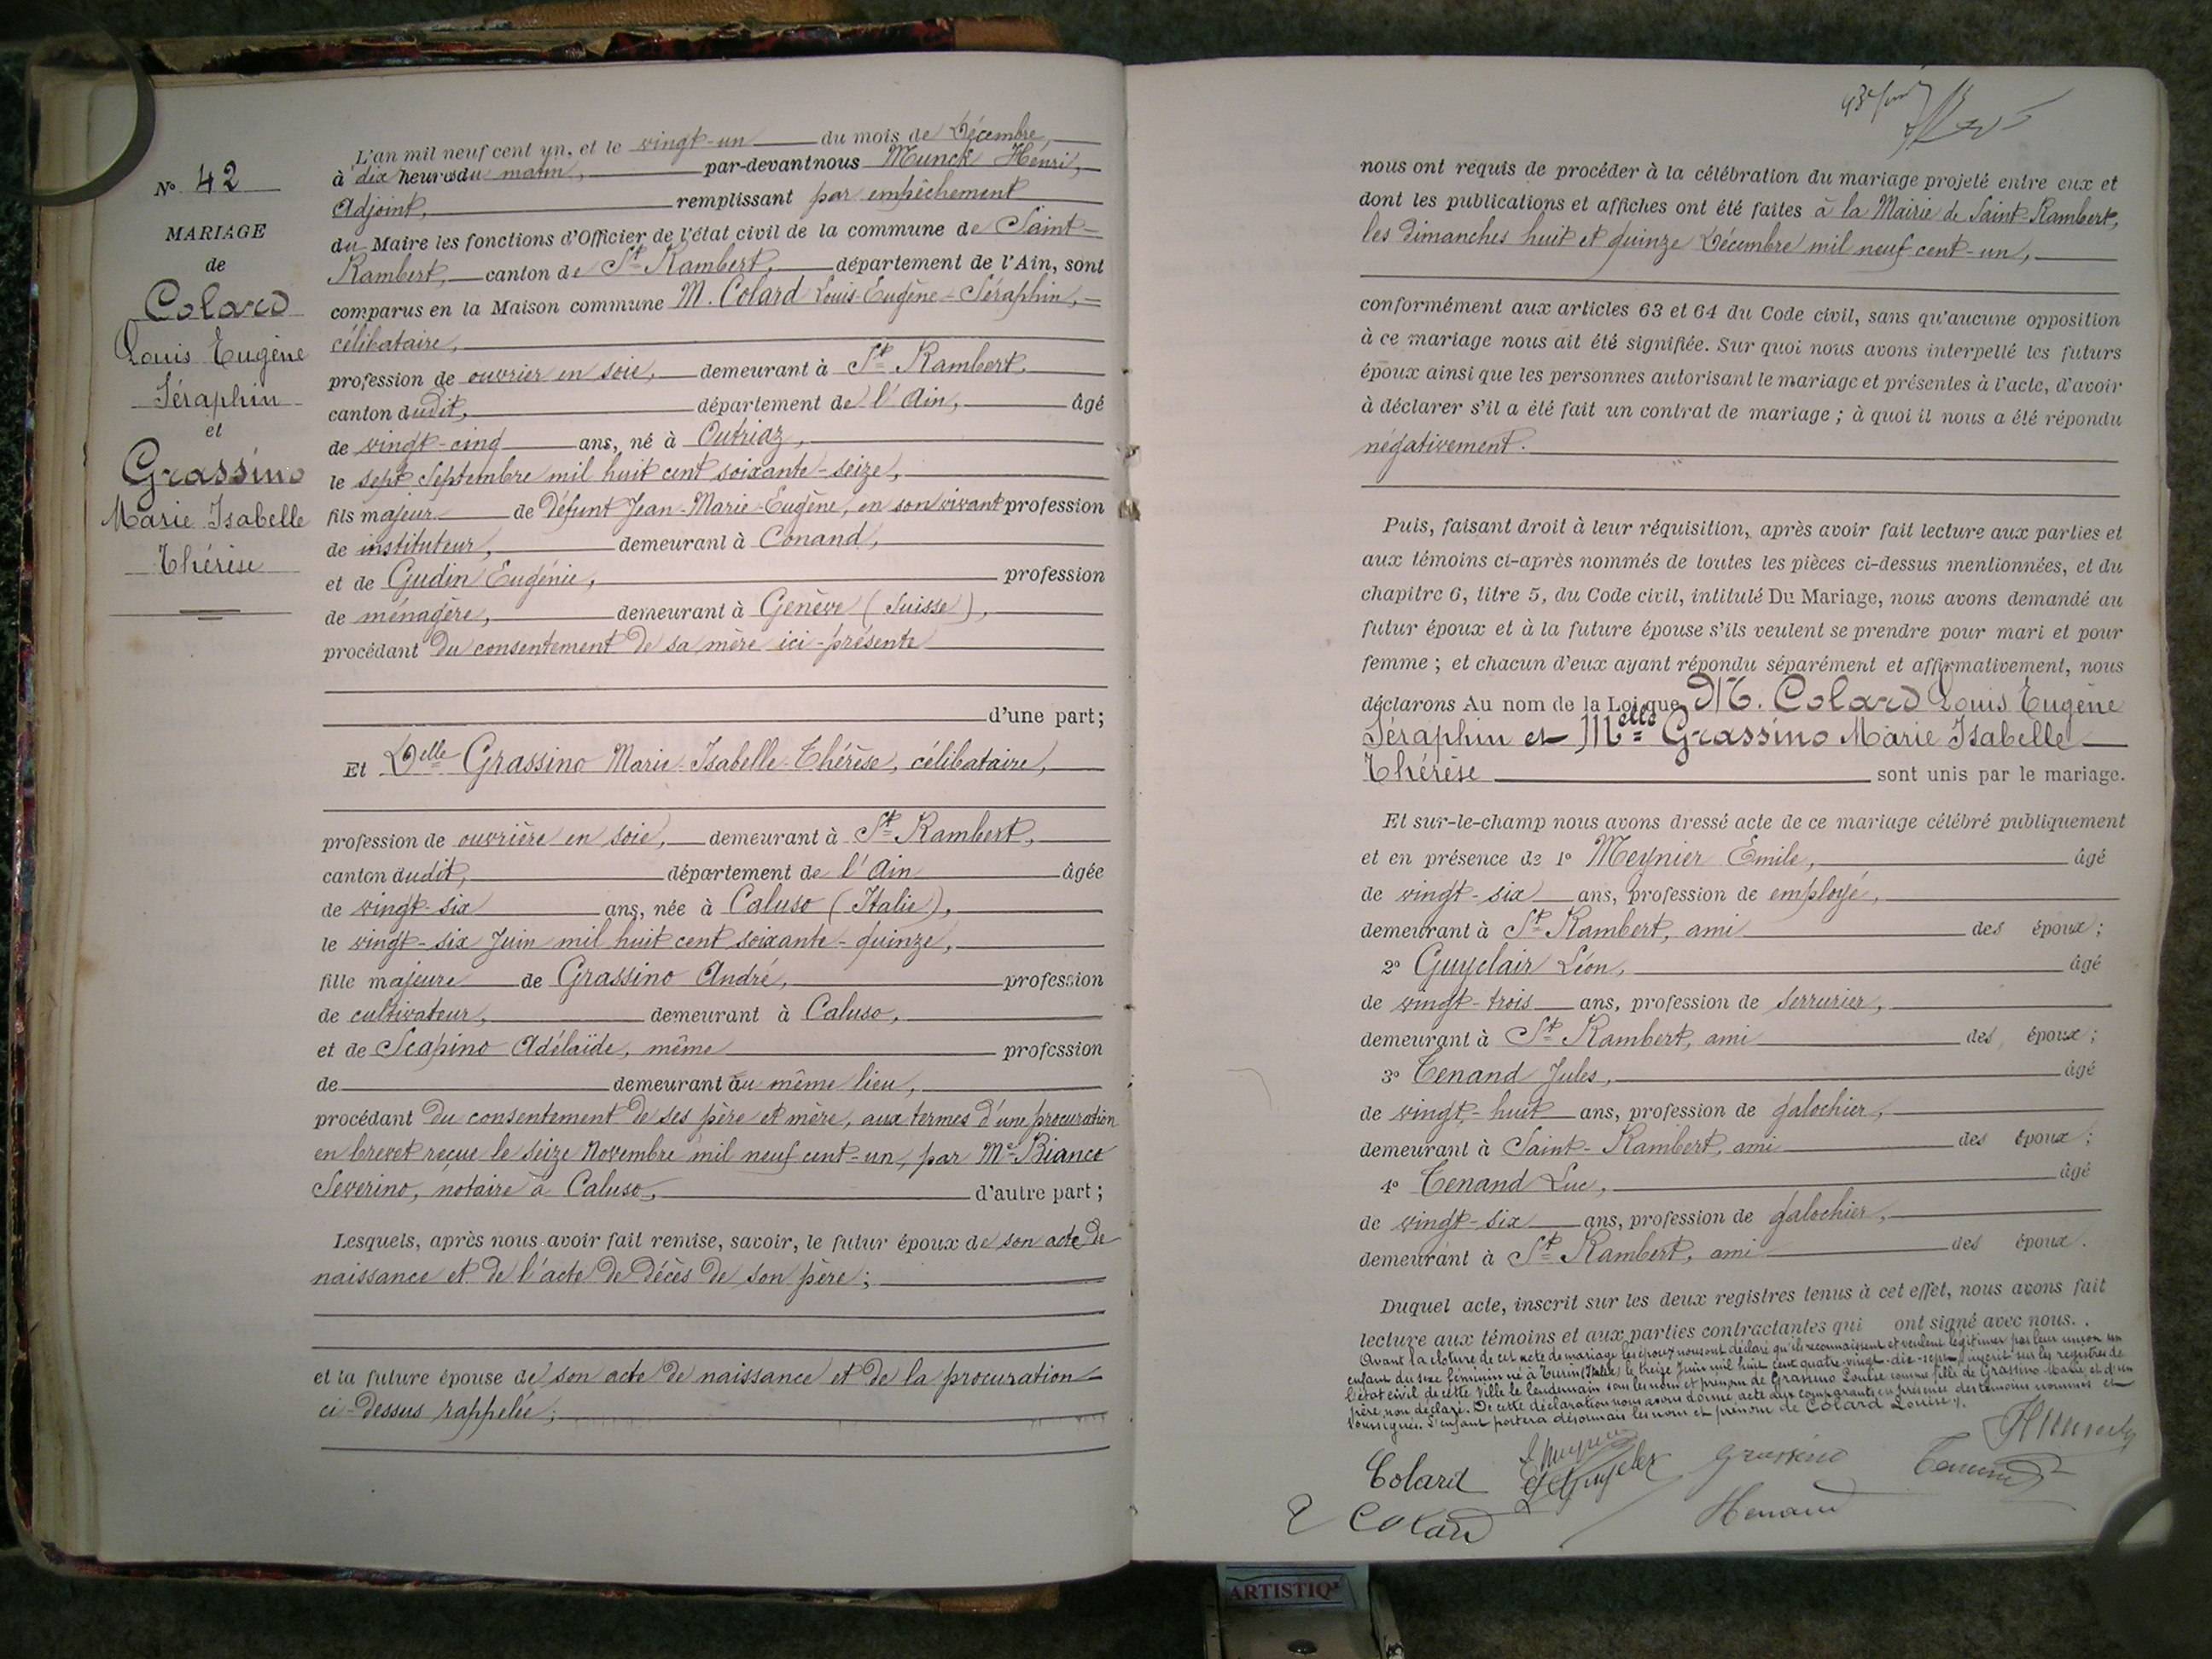 N° 42
MARIAGE
de
Colard
Louis Eugène
Séraphin
et
Grassino
Marie Isabelle
Thérèse
L'an mil neuf cent un, et le vingt-un du mois de Décembre,
à dix heures du matin, par-devant nous Munck Hénri,
Adjoint, remplissant par empêchement
du Maire les fonctions d'Officier de l'état civil de la commune de Saint-
Rambert, canton de St Rambert, département de l'Ain, sont
comparus en la Maison commune M. Colard Louis-Eugène-Séraphin,
célibataire,
profession de ouvrier en soie, demeurant à St Rambert,
canton dudit, département de l'Ain, âgé
de vingt-cinq ans, né à Outriaz,
le sept Septembre mil huit cent soixante-seize,
fils majeur de Défunt Jean-Marie-Eugène, en son vivant profession
de instituteur, demeurant à Conand,
et de Gudin Eugénie, profession
de ménagère, demeurant à Genève (Suisse),
procédant du consentement de sa mère ici-présente
d'une part;
Et Delle Grassino Marie-Isabelle-Thérèse, célibataire,
profession de ouvrière en soie, demeurant à St Rambert,
canton dudit, département de l'Ain âgée
de vingt-six ans, née à Caluso (Italie),
le vingt-six Juin mil huit cent soixante-quinze,
fille majeure de Grassino André, profession
de cultivateur, demeurant à Caluso,
et de Scapino Adélaïde, même profession
de demeurant au même lieu,
procédant du consentement de ses père et mère, aux termes d'une procuration
en brevet reçue le seize Novembre mil neuf cent-un, par Me Bianco
Severino, notaire à Caluso, d'autre part;
Lesquels, après nous avoir fait remise, savoir, le futur époux de son acte de
naissance et de l'acte de décès de son père;
et la future épouse de son acte de naissance et de la procuration
ci-dessus rappelée;
nous ont requis de procéder à la célébration du mariage projeté entre eux et
dont les publications et affiches ont été faites à la Mairie de Saint-Rambert,
les dimanches huit et quinze Décembre mil neuf cent-un,
conformément aux articles 63 et 64 du Code civil, sans qu'aucune opposition
à ce mariage nous ait été signifiée. Sur quoi nous avons interpellé les futurs
époux ainsi que les personnes autorisant le mariage et présentes à l'acte, d'avoir
à déclarer s'il a été fait un contrat de mariage; à quoi il nous a été répondu
négativement.
Puis, faisant droit à leur réquisition, après avoir fait lecture aux parties et
aux témoins ci-après nommés de toutes les pièces ci-dessus mentionnées, et du
chapitre 6, titre 5, du Code civil, intitulé Du Mariage, nous avons demandé au
futur époux et à la future épouse s'ils veulent se prendre pour mari et pour
femme; et chacun d'eux ayant répondu séparément et affirmativement, nous
déclarons Au nom de la Loi que M. Colard Louis Eugène
Séraphin et Melle Grassino Marie Isabelle
Thérèse sont unis par le mariage.
Et sur-le-champ nous avons dressé acte de ce mariage célébré publiquement
et en présence de 1° Meynier Emile, âgé
de vingt-six ans, profession de employé,
demeurant à St Rambert, ami des époux;
2° Guyclair Léon, âgé
de vingt-trois ans, profession de serrurier,
demeurant à St Rambert, ami des époux;
3° Tenand Jules, âgé
de vingt-huit ans, profession de galochier,
demeurant à Saint-Rambert, ami des époux;
4° Tenand Luc, âgé
de vingt-six ans, profession de galochier,
demeurant à St Rambert, ami des époux.
Duquel acte, inscrit sur les deux registres tenus à cet effet, nous avons fait
lecture aux témoins et aux parties contractantes qui ont signé avec nous.
Avant la cloture de cet acte de mariage les époux nous ont déclaré qu'ils reconnaissent et veulent légitimer par leur union un
enfant du sexe féminin né à Turin (Italie) le treize Juin mil huit cent quatre-vingt-dix-sept, inscrit sur les registres de
l'état civil de cette ville le lendemain sous les nom et prénom de Grassino Louise comme fille de Grassino Marie et d'un
père non déclaré. De cette déclaration nous avons donné acte aux comparants en présence des témoins nommés et
soussignés. L'enfant portera désormais les nom et prénom de Colard Louise.
Colard
Grassino
Tenand
Colard
ARTISTIQ